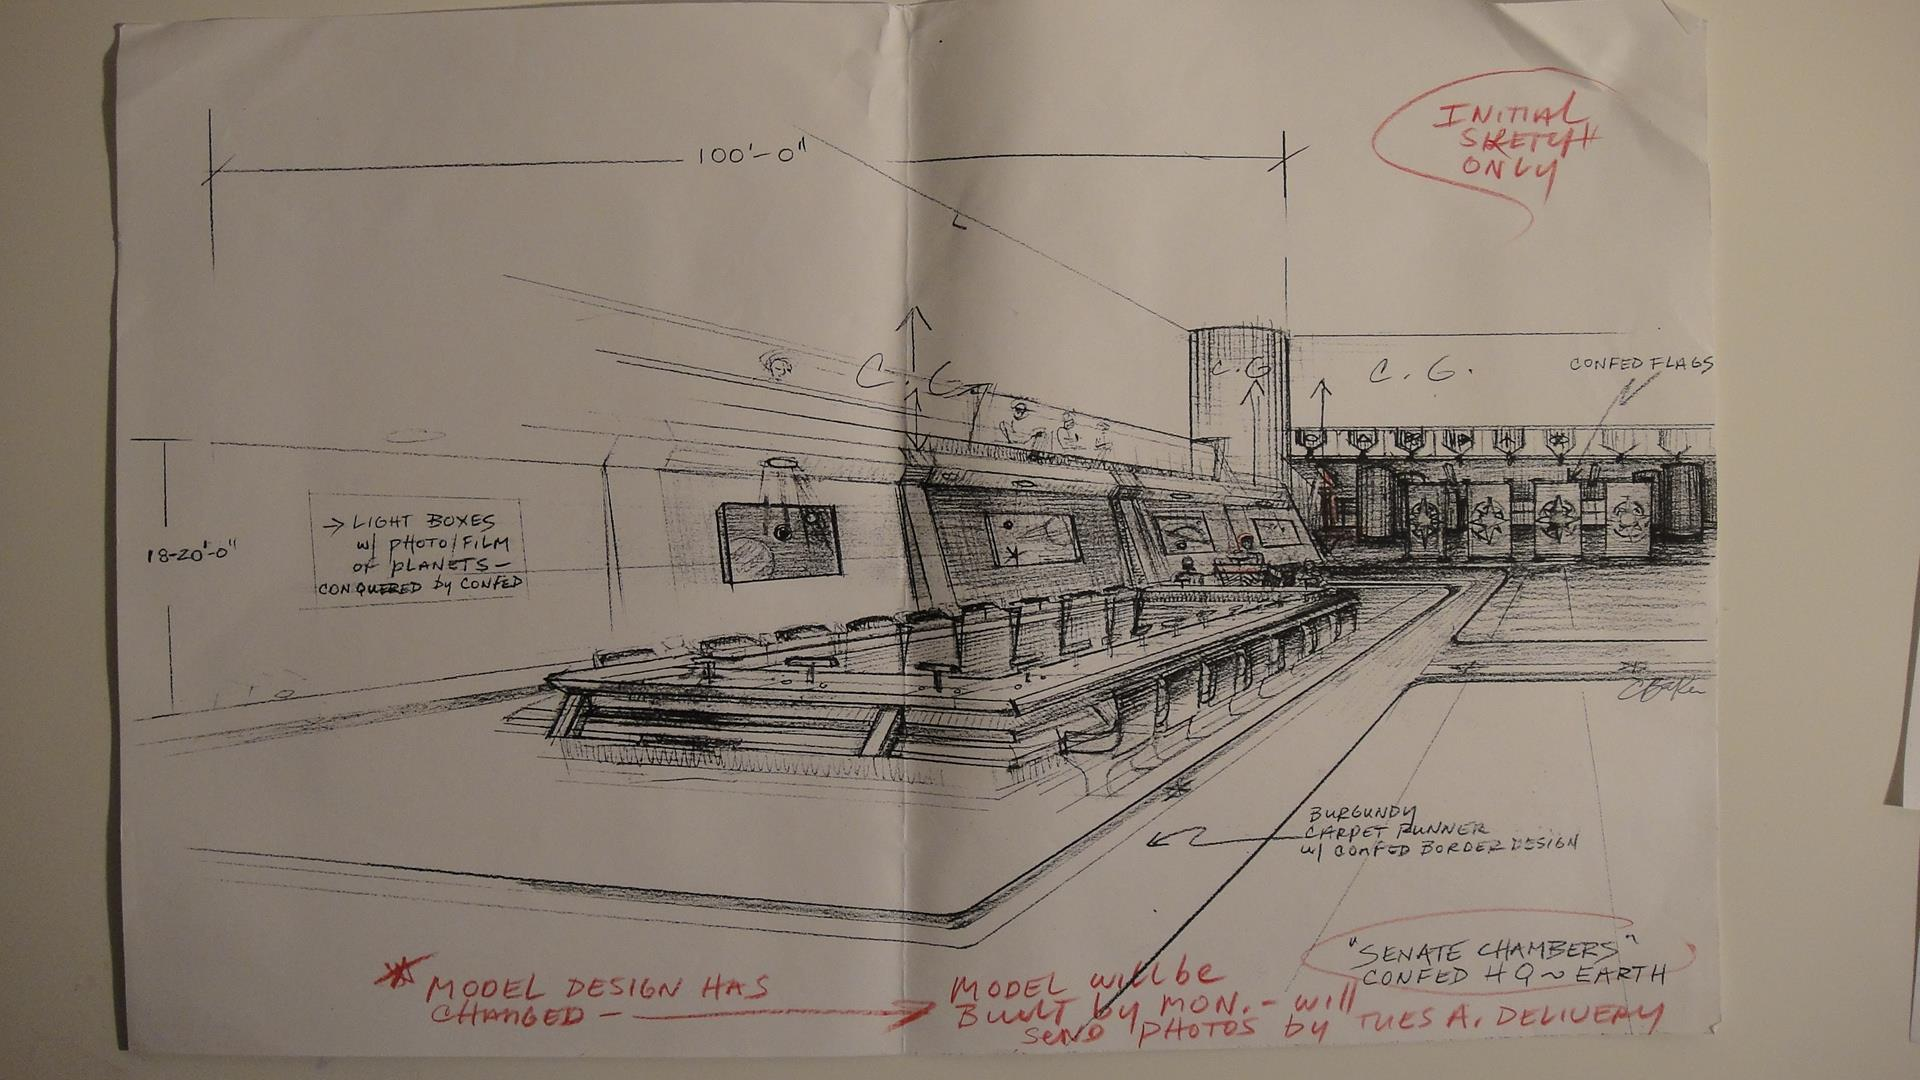 100'-0"
INITIAL
SKETCH
ONLY
C. G.
C. G
C. G.
CONFED FLAGS
18-20'-0"
LIGHT BOXES
w/ PHOTO/FILM
OF PLANETS -
CONQUERED by CONFED
BURGUNDY
CARPET RUNNER
w/ CONFED BORDER DESIGN
"SENATE CHAMBERS"
CONFED HQ ~ EARTH
MODEL DESIGN HAS
CHANGED -
MODEL will be
Built by MON. - will
SEND PHOTOS by TUES A. DELIVERY